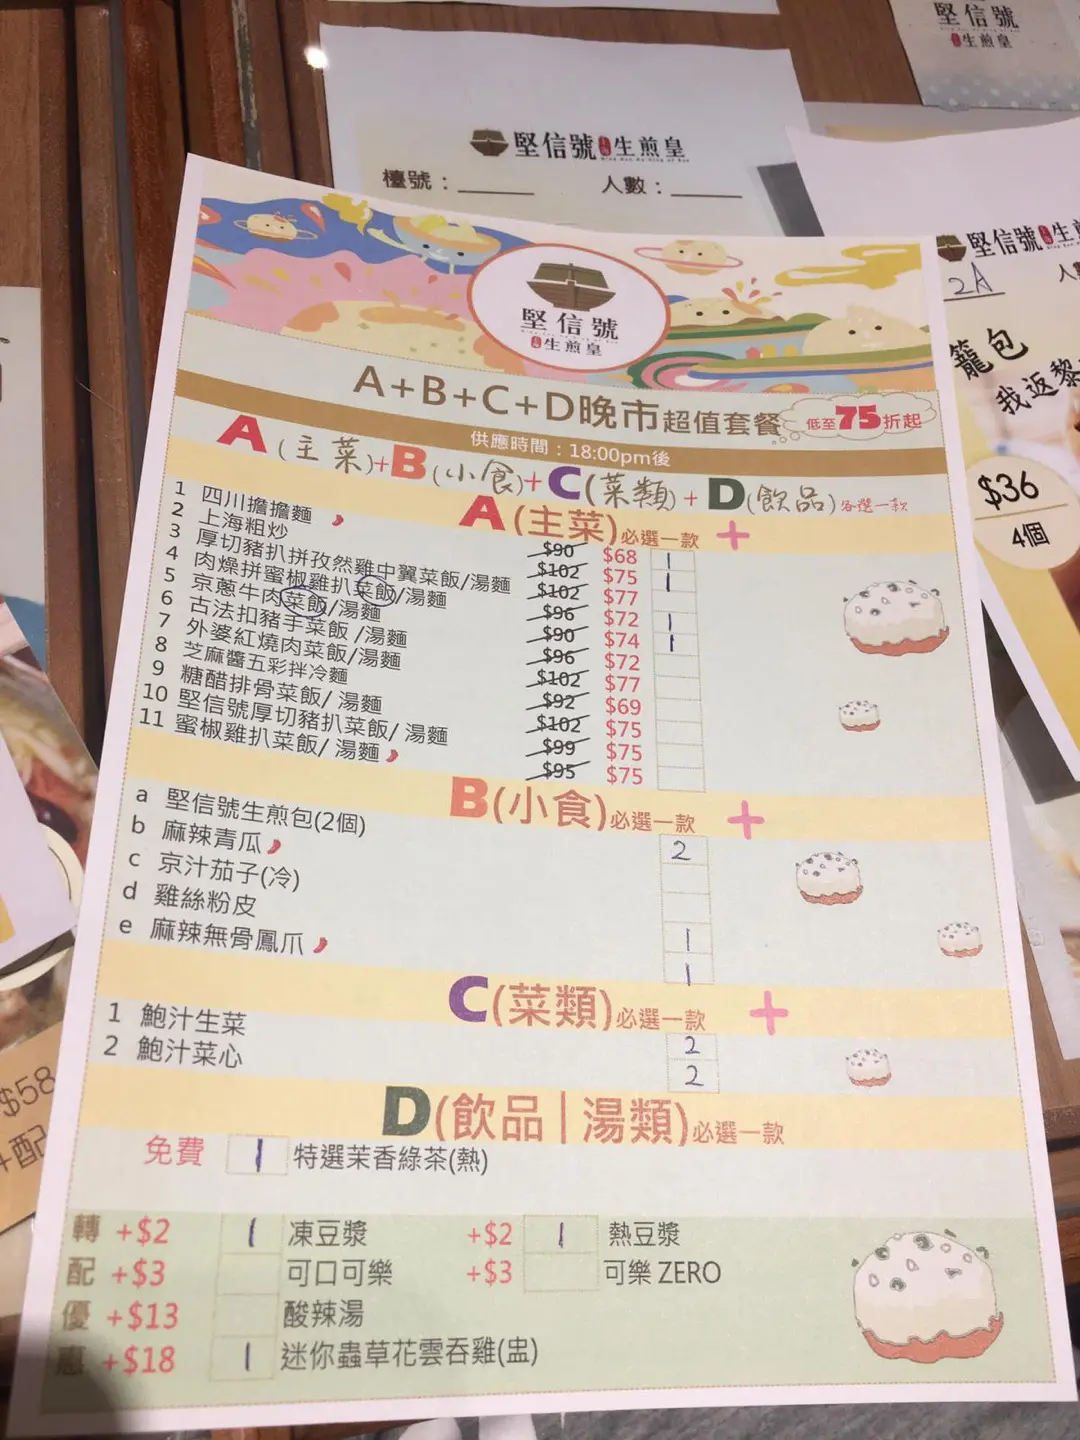 堅信號
生煎皇
堅信號 上海 生煎皇
檯號：
人數：
堅信號 上海 生煎
2A
人
籠包
我返黎
$36
4個
堅信號
上海 生煎皇
A+B+C+D晚市超值套餐 低至75折起
供應時間：18:00pm後
A(主菜)+B(小食)+C(菜類)+D(飲品)各選一款
A(主菜)必選一款 +
1 四川擔擔麵 $90 $68 1
2 上海粗炒 $102 $75 1
3 厚切豬扒拼孜然雞中翼菜飯/湯麵 $102 $77
4 肉燥拼蜜椒雞扒菜飯/湯麵 $96 $72 1
5 京蔥牛肉菜飯/湯麵 $90 $74 1
6 古法扣豬手菜飯 /湯麵 $96 $72
7 外婆紅燒肉菜飯/湯麵 $102 $77
8 芝麻醬五彩拌冷麵 $92 $69
9 糖醋排骨菜飯/ 湯麵 $102 $75
10 堅信號厚切豬扒菜飯/ 湯麵 $99 $75
11 蜜椒雞扒菜飯/ 湯麵 $95 $75
B(小食)必選一款 +
a 堅信號生煎包(2個) 2
b 麻辣青瓜
c 京汁茄子(冷)
d 雞絲粉皮 1
e 麻辣無骨鳳爪 1
C(菜類)必選一款 +
1 鮑汁生菜 2
2 鮑汁菜心 2
D(飲品|湯類)必選一款
免費 1 特選茉香綠茶(熱)
轉 +$2 1 凍豆漿 +$2 1 熱豆漿
配 +$3 可口可樂 +$3 可樂 ZERO
優 +$13 酸辣湯
惠 +$18 1 迷你蟲草花雲吞雞(盅)
$58
+配